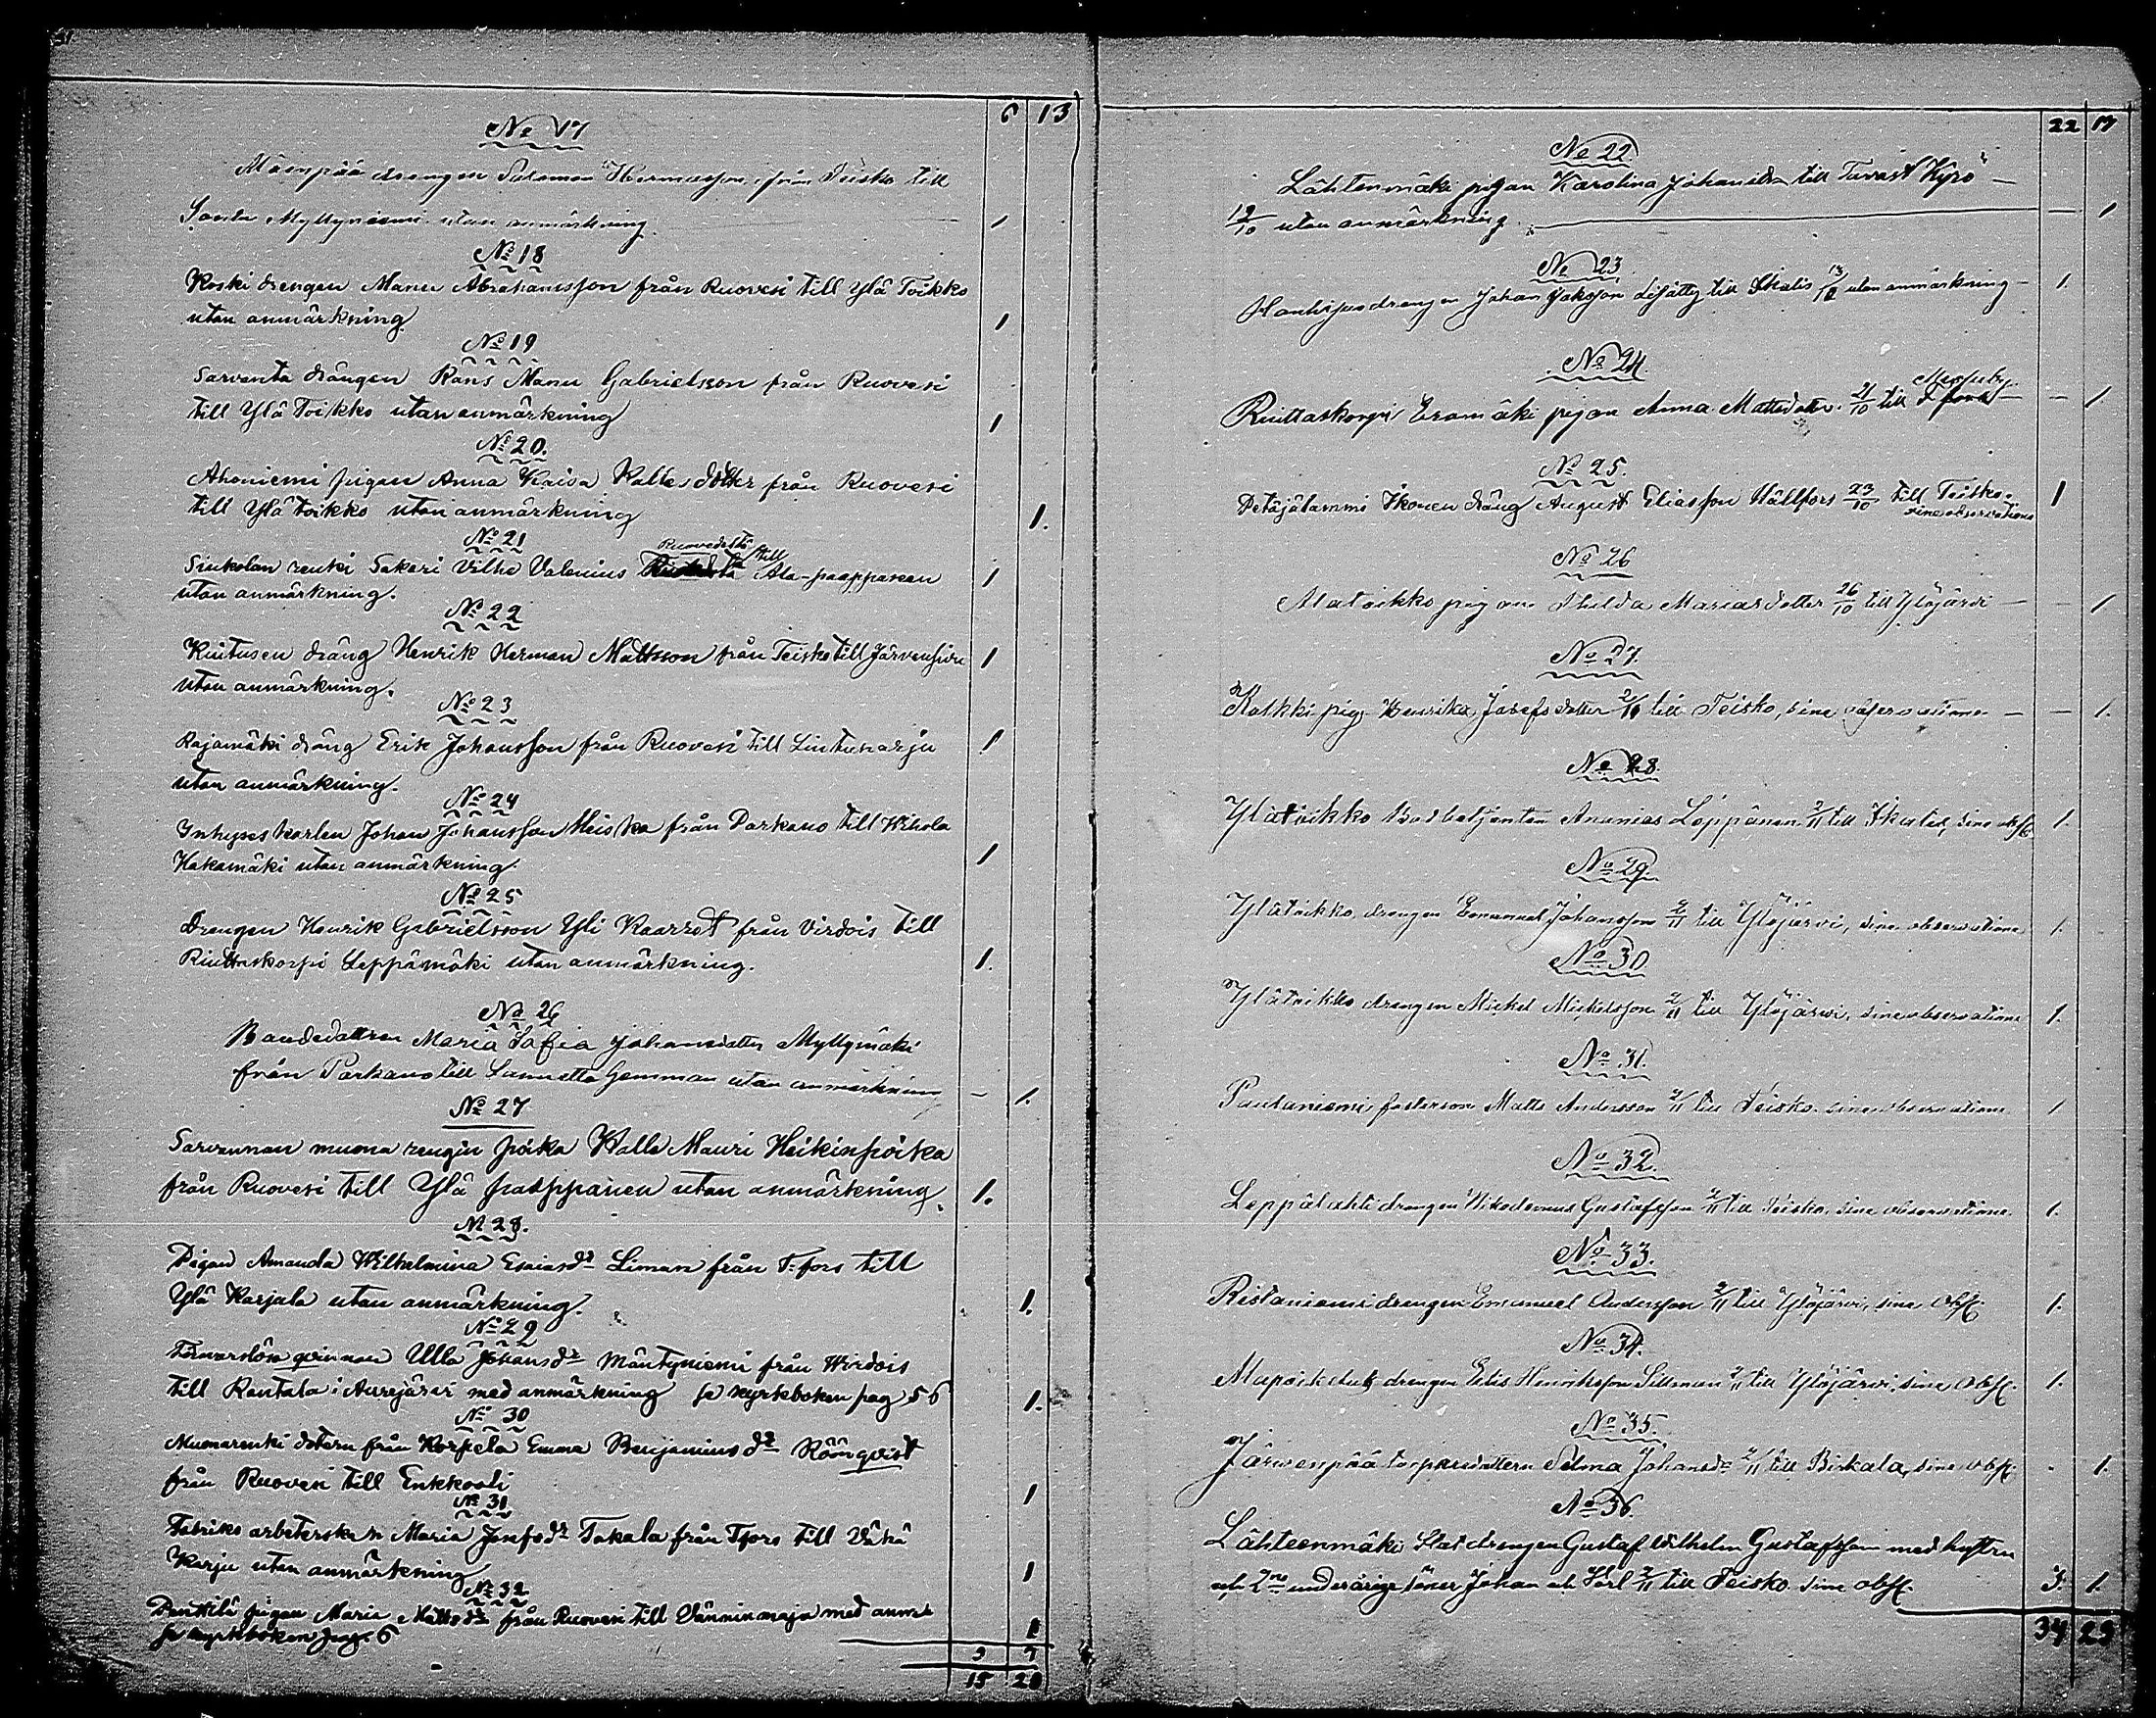 6 13
No 17
Mäenpää drengen Salomon Hermansson, från Teisko till
Santu Myllyniemi utan anmärkning. 1
No 18
Koski drengen Manu Abrahamsson från Ruovesi till Ylä Toikko
utan anmärkning 1
No 19
Sarvanta drängen Kans Manu Gabrielsson från Ruovesi
till Ylä Toikko utan anmärkning 1
No 20.
Ahoniemi pigan Anna Kaisa Kalles dotter från Ruovesi
till Ylä toikko utan anmärkning 1.
No 21
Ruovedeltä
Sinkolan renki Sakari Vilho Valenius till Ala-paappanen 1
utan anmärkning.
No 22
Kuitusen dräng Henrik Herman Mattsson från Teisko till Järvensivu 1
utan anmärkning.
No 23
Rajamäki dräng Erik Johansson från Ruovesi till Lintuharju 1
utan anmärkning.
No 24
Inhyseskarlen Johan Johansson Heiska från Parkano till Wihola
Hakamäki utan anmärkning. 1
No 25
Drengen Henrik Gabrielsson Yli Kaarret från Virdois till
Riuttaskorpi Leppämäki utan anmärkning. 1.
No 26
Bondedottren Maria Sofia Johansdotter Myllymäki
från Parkano till Lamutto Gemman utan anmärkning - 1.
No 27
Sarvannan muona rengin poika Kalle Mauri Heikinpoika
från Ruovesi till Ylä paappanen utan anmärkning. 1.
No 28.
Pigan Amanda Wilhelmina Esaiasdr Liman från T-fors till
Ylä Karjala utan anmärkning. 1.
No 29
Försvarslösa qvinnan Ulla Johansdr Mäntyniemi från Wirdois
till Rantala i Aurejärvi med anmärkning se kyrkboken pag 56 1.
No 30
Muonarenki dotern från Korpela Emma Benjaminsdr Röönqvist
från Ruovesi till Enkkooli 1
No 31
Fabriks arbeterskan Maria Josefsdr Takala från Tfors till Vähä
Karju utan anmärkning 1
No 32
Penttilä pigan Maria Mattsdr från Ruovesi till Vänninmaja med anm.
se kyrkboken pag. 6 1
9 7
15 20
22 17
No 22.
Lähtenmäki pigan Karolina Johansdr till Tavast Kyrö -
12/10 utan anmärkning. - 1
No 23
drengen Johan Jaksson till Ikalis 13/10 utan anmärkning - 1.
No 24.
Messuby
Riuttaskorpi Eramäki pigan Anna Mattsdotter 21/10 till T fors - - 1
No 25.
Petäjälammi Ikonen dräng August Eliasson Hällfors 23/10 till Teisko. 1
sine observatione
No 26
Alatoikko pigan Hilda Mariasdotter 26/10 till Ylöjärvi - - 1
No 27.
Kolkki pig. Henrika Josefsdotter 2/11 till Teisko, sine observatione - - 1.
No 28.
Ylätoikko Bodbetjenten Ananias Löppänen 2/11 till Ikalis, sine obs. 1.
No 29.
Ylätoikko drengen Emanuel Johansson 2/11 till Ylöjärvi, sine observatione 1.
No 30
Ylätoikko drengen Mickel Mickelsson 2/11 till Ylöjärvi, sine observatione 1.
No 31.
Pautaniemi fosterson Matts Andersson 2/11 till Teisko. sine observatione 1
No 32.
Leppälahti drengen Nikodemus Gustafsson 2/11 till Teisko, sine observatione. 1.
No 33.
Ristaniemi drengen Emanuel Andersson 2/11 till Ylöjärvi, sine obs. 1.
No 34.
drengen Elis Henriksson Sillman 2/11 till Ylöjärvi, sine obs. 1.
No 35.
Järvenpää torparedottern Selma Johansdr 2/11 till Birkala, sine obs. - 1.
No 36.
Lähteenmäki Statdrengen Gustaf Wilhelm Gustafsson med hustru
och 2ne underårige söner Johan och Karl 2/11 till Teisko. sine obs. 3. 1.
34 23